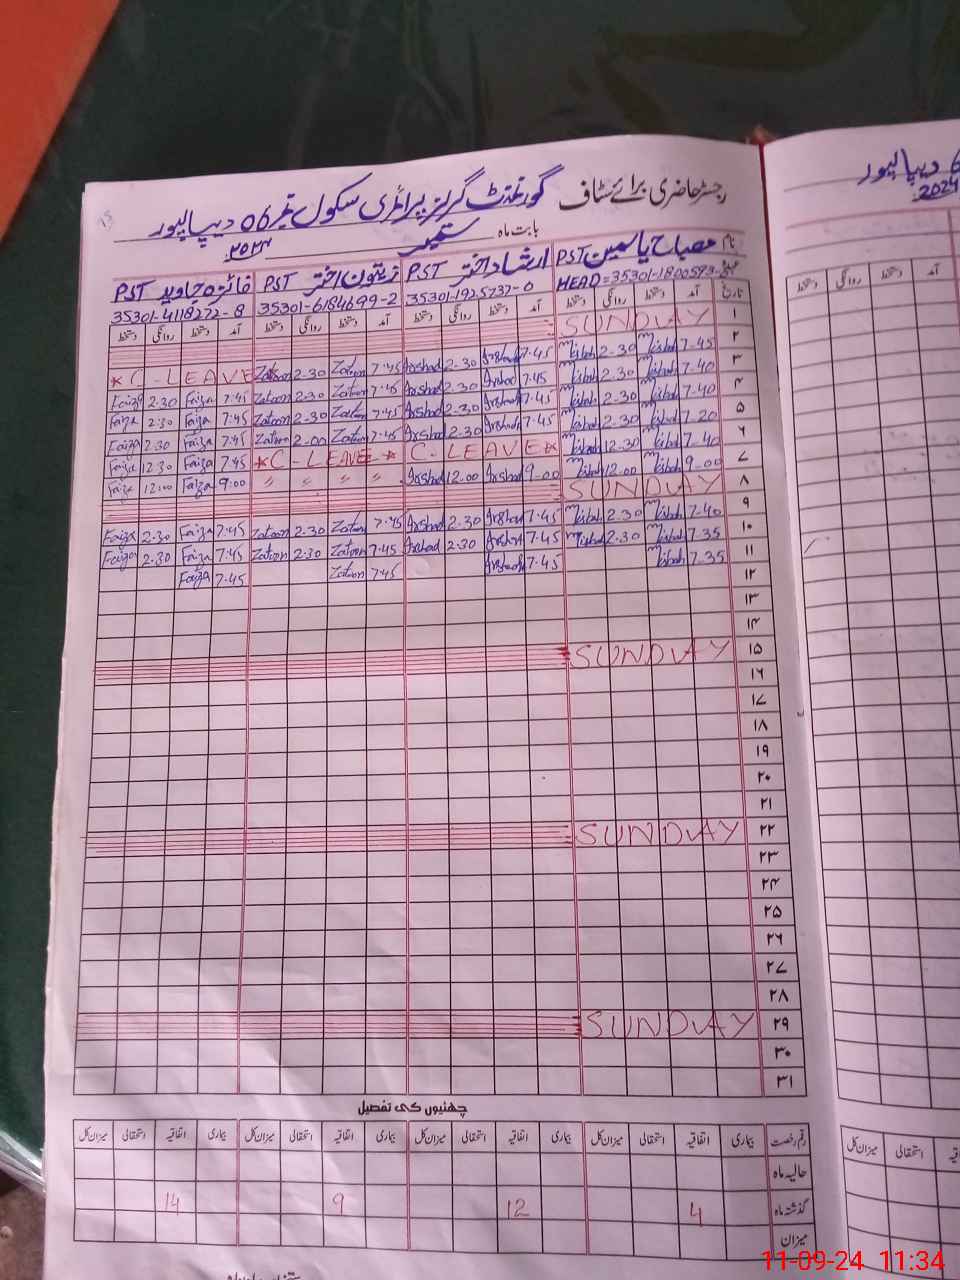 رجسٹر حاضری برائے سٹاف گورنمنٹ گرلز پرائمری سکول نمبر 06 دیپالپور
بابت ماہ ستمبر ۲۰۲۴
نام مصباح یاسمین PST ارشاد اختر PST زیتون اختر PST فائزہ جاوید PST
عہدہ HEAD=35301-1800593- 35301-1925737-0 35301-6184699-2 35301-4118272-8
تاریخ آمد دستخط روانگی دستخط آمد دستخط روانگی دستخط آمد دستخط روانگی دستخط آمد دستخط روانگی دستخط
۱ SUNDAY
۲ 7-45 Misbah 2-30 Misbah 7-45 Arshad 2-30 Arshad 7-45 Zatoon 2-30 Zatoon *C-LEAVE*
۳ 7-40 Misbah 2-30 Misbah 7-45 Arshad 2-30 Arshad 7-45 Zatoon 2-30 Zatoon 7-45 Faiza 2-30 Faiza
۴ 7-40 Misbah 2-30 Misbah 7-45 Arshad 2-30 Arshad 7-45 Zatoon 2-30 Zatoon 7-45 Faiza 2-30 Faiza
۵ 7-20 Misbah 2-30 Misbah 7-45 Arshad 2-30 Arshad 7-45 Zatoon 2-00 Zatoon 7-45 Faiza 2-30 Faiza
۶ 7-40 Misbah 12-30 Misbah C-LEAVE* *C-LEAVE-* 7-45 Faiza 12-30 Faiza
۷ 9-00 Misbah 12-00 Misbah 9-00 Arshad 12-00 Arshad " " " " 9:00 Faiza 12:00 Faiza
۸ SUNDAY
۹ 7-40 Misbah 2-30 Misbah 7-45 Arshad 2-30 Arshad 7-45 Zatoon 2-30 Zatoon 7-45 Faiza 2-30 Faiza
۱۰ 7-35 Misbah 2-30 Misbah 7-45 Arshad 2-30 Arshad 7-45 Zatoon 2-30 Zatoon 7-45 Faiza 2-30 Faiza
۱۱ 7-35 Misbah 7-45 Arshad 7-45 Zatoon 7-45 Faiza
۱۲
۱۳
۱۴
۱۵ SUNDAY
۱۶
۱۷
۱۸
۱۹
۲۰
۲۱
۲۲ SUNDAY
۲۳
۲۴
۲۵
۲۶
۲۷
۲۸
۲۹ SUNDAY
۳۰
۳۱
چھٹیوں کی تفصیل
رقم رخصت بیماری اتفاقیہ استحقاقی میزان کل بیماری اتفاقیہ استحقاقی میزان کل بیماری اتفاقیہ استحقاقی میزان کل بیماری اتفاقیہ استحقاقی میزان کل
حالیہ ماہ
گذشتہ ماہ 4 12 9 14
میزان
دیپالپور
2024
آمد دستخط روانگی دستخط
استحقاقی میزان کل
11-09-24 11:34